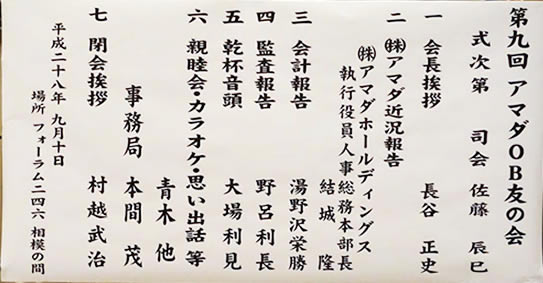 第九回 アマダOB友の会
式次第 司会 佐藤 辰巳
一 会長挨拶 長谷 正史
二 ㈱アマダ近況報告
㈱アマダホールディングス
執行役員人事総務本部長
結城 隆
三 会計報告 湯野沢栄勝
四 監査報告 野呂利長
五 乾杯音頭 大場利見
六 親睦会・カラオケ・思い出話 等
青木 他
事務局 本間 茂
七 閉会挨拶 村越武治
平成二十八年 九月十日
場所 フォーラム二四六 相模の間